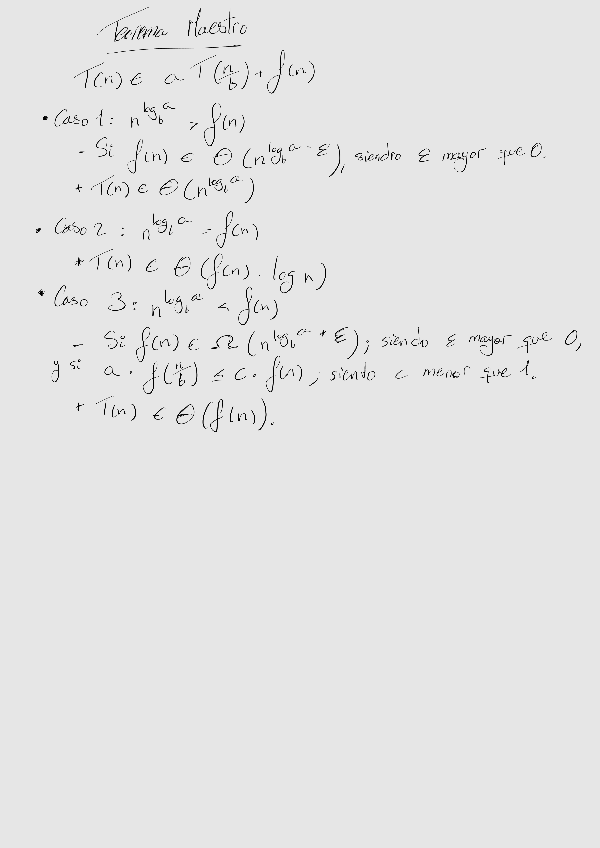 Teorema Maestro
T(n) ∈ a T(n/b) + f(n)
• Caso 1: n^(log_b a) > f(n)
- Si f(n) ∈ Θ(n^(log_b a - ε)), siendo ε mayor que 0.
+ T(n) ∈ Θ(n^(log_b a))
• Caso 2: n^(log_b a) = f(n)
* T(n) ∈ Θ(f(n) · log n)
* Caso 3: n^(log_b a) < f(n)
- Si f(n) ∈ Ω(n^(log_b a + ε)); siendo ε mayor que 0,
y si a · f(n/b) ≤ c · f(n); siendo c menor que 1.
+ T(n) ∈ Θ(f(n)).